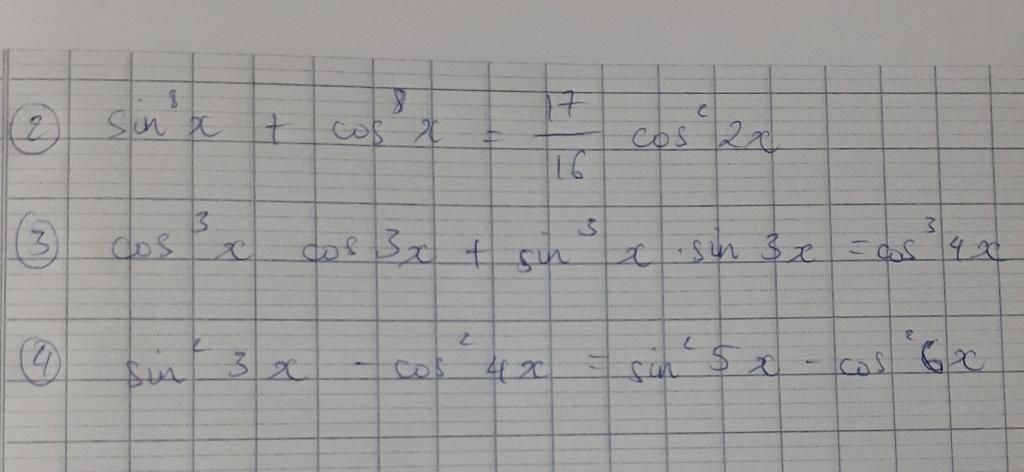 ② sin⁸x + cos⁸x = 17/16 cos²2x
③ cos³x cos3x + sin³x · sin3x = cos³4x
④ sin²3x - cos²4x = sin²5x - cos²6x